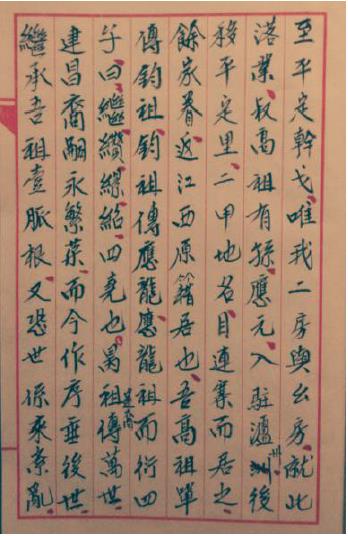 至平定幹戈唯我二房與幺房就此
落業叔高祖有孫應元入駐瀘州後
移平定里二甲地名目連寨而居之
餘家眷返江西原籍居也吾高祖單
傳鈞祖鈞祖傳應龍應龍祖而衍四
子曰繼纘纓紹四堯也昺祖建商傳萬世
建昌裔嗣永繁荣而今作序垂後世
繼承吾祖壹脈根又恐世係來紊亂